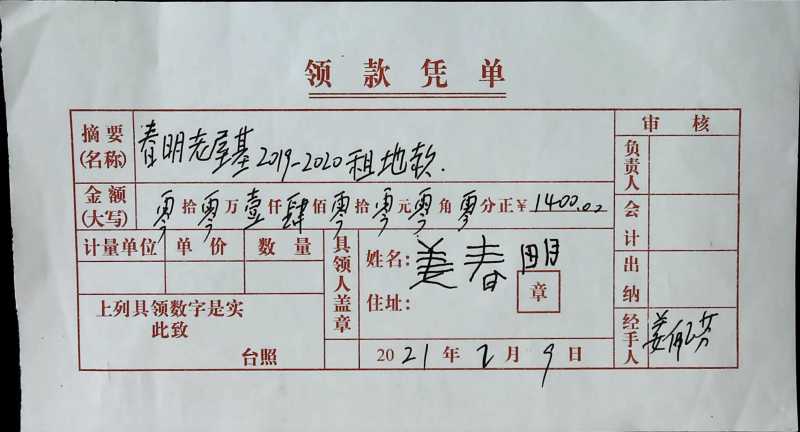 领款凭单
摘要
(名称)
春明老屋基2019-2020租地款.
审核
负责人
金额
(大写)
零拾零万壹仟肆佰零拾零元零角零分正¥1400.00
会计
计量单位 单价 数量
具领人盖章
姓名:姜春明
住址:
章
出纳
上列具领数字是实
此致
台照
2021年2月9日
经手人
姜